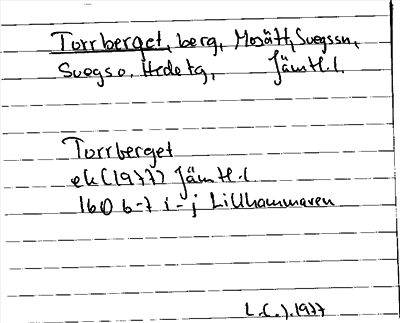 Torrberget, berg, Mosätt, Svegssn,
Svegs o. Hede tg, Jämtl. l.
Torrberget
ek (1977) Jämtl. l
16D 6-7 i-j Lillhammaren
L.C.J. 1977